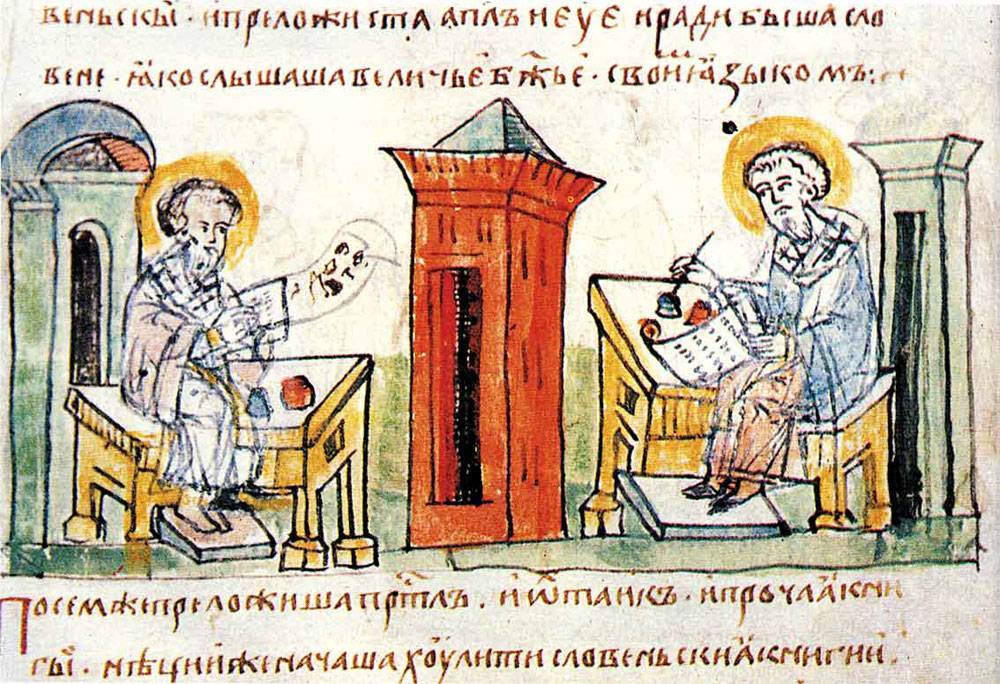 веньскы · и преложиста апл҃ъ и еуⷢ҇е и ради быша сло
вене · ꙗко слышаша величьє бж҃ьє · своимь ꙗзыкомъ :·
Посем же преложиша псл҃тръ · и ѡктаикъ · и прочаꙗ кни
гы · нѣции же начаша хоулити словеньскиꙗ книги ·